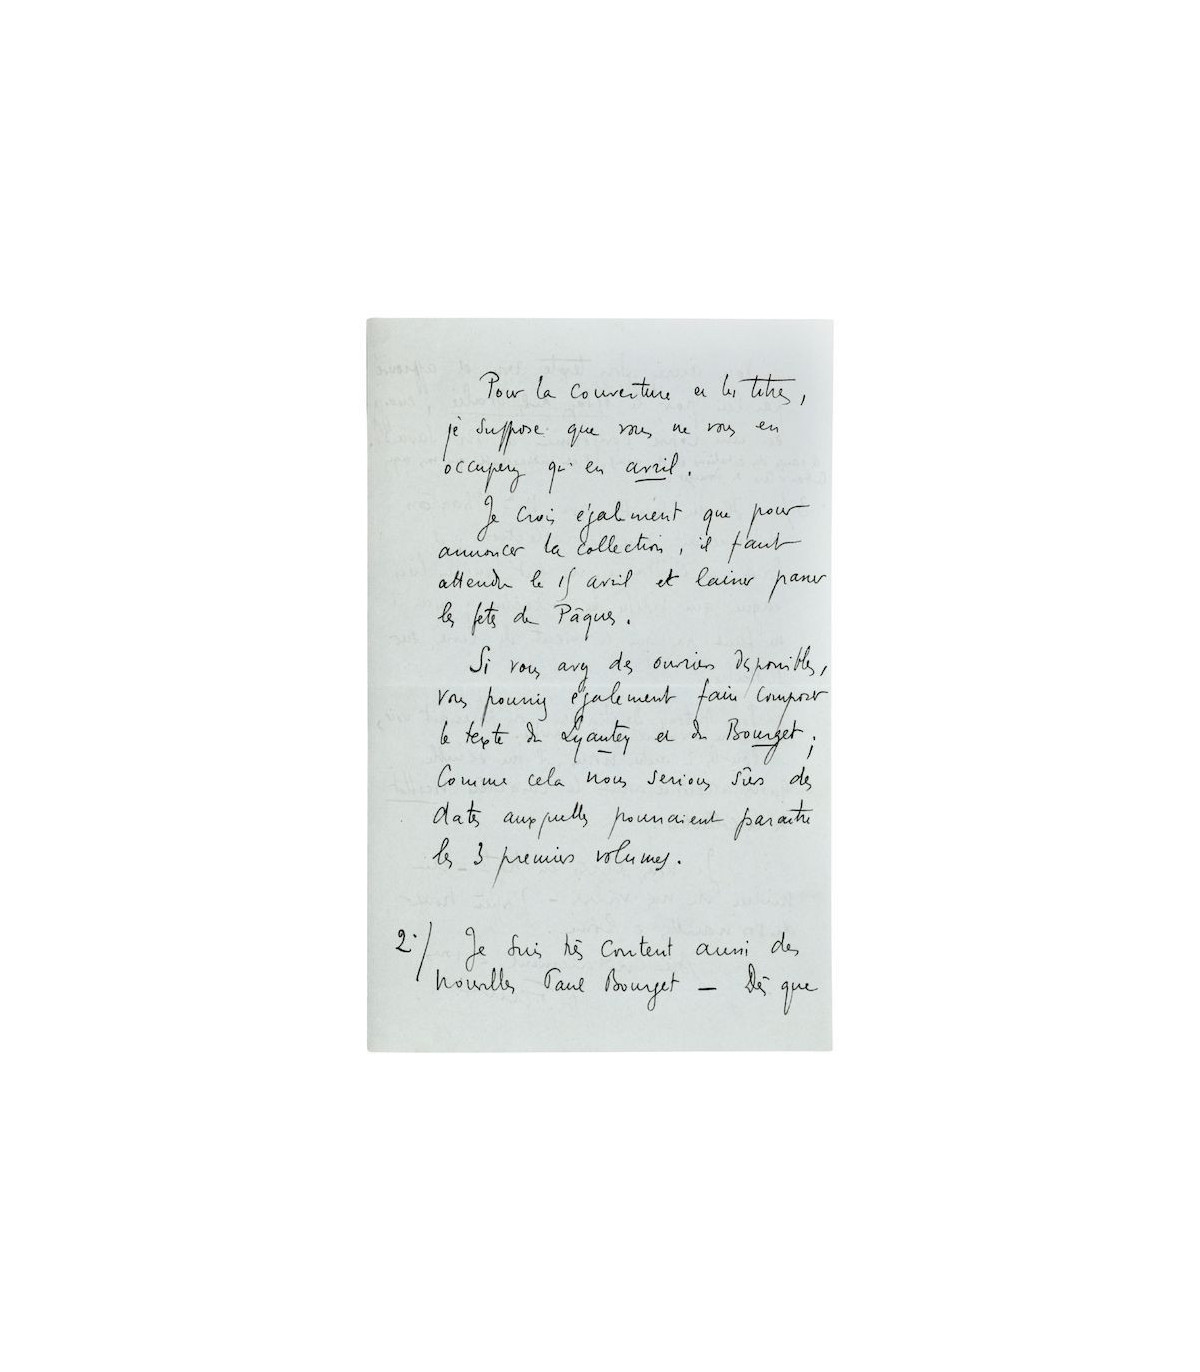 Pour la couverture et les titres,
je suppose que vous ne vous en
occuperez qu'en avril.
Je crois également que pour
annoncer la collection, il faut
attendre le 15 avril et laisser passer
les fêtes de Pâques.
Si vous avez des ouvriers disponibles,
vous pourriez également faire composer
le texte du Lyautey et du Bourget ;
Comme cela nous serions sûrs des
dates auxquelles pourraient paraître
les 3 premiers volumes.
2°/ Je suis très content aussi des
nouvelles Paul Bourget — Dès que